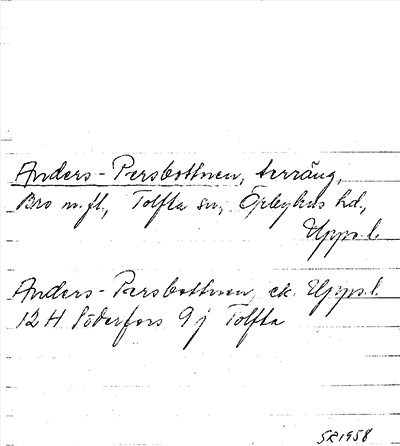 Anders-Persbottnen, terräng,
Bro m.fl., Tolfta sn, Örbyhus hd.,
Upps.l.
Anders-Persbottnen, ek. Upps.l.
12H Söderfors 9j Tolfta
SR1958